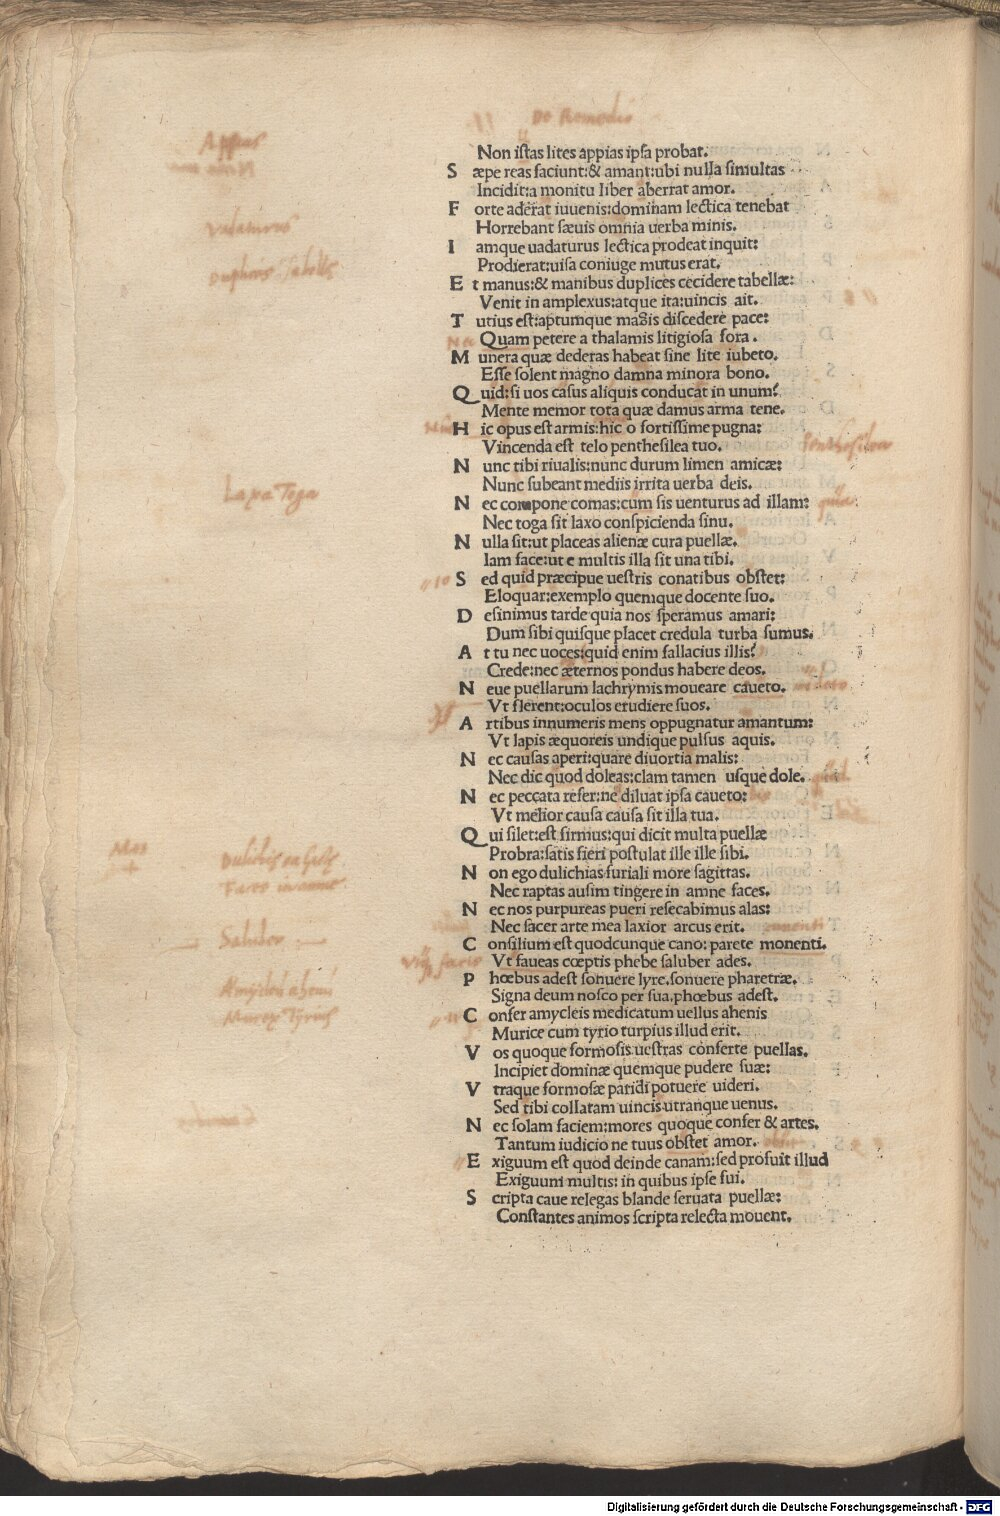 De Remedio
Non istas lites appias ipsa probat.
S æpe reas faciunt:& amant:ubi nulla simultas
Incidit:a monitu liber aberrat amor.
F orte aderat iuuenis:dominam lectica tenebat
Horrebant sæuis omnia uerba minis.
I amque uadaturus lectica prodeat inquit:
Prodierat:uisa coniuge mutus erat.
E t manus:& manibus duplices cecidere tabellæ:
Venit in amplexus:atque ita:uincis ait.
T utius est:aptumque magis discedere pace:
Quam petere a thalamis litigiosa fora.
M unera quæ dederas habeat sine lite iubeto.
Esse solent magno damna minora bono.
Q uid:si uos casus aliquis conducat in unum?
Mente memor tota quæ damus arma tene.
H ic opus est armis:hic o fortissime pugna:
Vincenda est telo penthesilea tuo.
N unc tibi riualis:nunc durum limen amicæ:
Nunc subeant mediis irrita uerba deis.
N ec compone comas:cum sis uenturus ad illam:
Nec toga sit laxo conspicienda sinu.
N ulla sit:ut placeas alienæ cura puellæ.
Iam face:ut e multis illa sit una tibi.
S ed quid præcipue uestris conatibus obstet:
Eloquar:exemplo quemque docente suo.
D esinimus tarde quia nos speramus amari:
Dum sibi quisque placet credula turba sumus.
A t tu nec uoces:quid enim fallacius illis?
Crede:nec æternos pondus habere deos.
N eue puellarum lachrymis moueare caueto.
Vt flerent:oculos erudiere suos.
A rtibus innumeris mens oppugnatur amantum:
Vt lapis æquoreis undique pulsus aquis.
N ec causas aperi:quare diuortia malis:
Nec dic quod doleas:clam tamen usque dole.
N ec peccata refer:ne diluat ipsa caueto:
Vt melior causa causa sit illa tua.
Q ui silet:est firmus:qui dicit multa puellæ
Probra:satis fieri postulat ille ille sibi.
N on ego dulichias furiali more sagittas.
Nec raptas ausim tingere in amne faces.
N ec nos purpureas pueri resecabimus alas:
Nec sacer arte mea laxior arcus erit.
C onsilium est quodcunque cano: parete monenti.
Vt faueas cœptis phebe saluber ades.
P hœbus adest sonuere lyre.sonuere pharetræ.
Signa deum nosco per sua.phœbus adest.
C onfer amycleis medicatum uellus ahenis
Murice cum tyrio turpius illud erit.
V os quoque formosis uestras conferte puellas.
Incipiet dominæ quemque pudere suæ:
V traque formosæ paridi potuere uideri.
Sed tibi collatam uincis utranque uenus.
N ec solam faciem:mores quoque confer & artes.
Tantum iudicio ne tuus obstet amor.
E xiguum est quod deinde canam:sed profuit illud
Exiguum multis: in quibus ipse fui.
S cripta caue relegas blande seruata puellæ:
Constantes animos scripta relecta mouent.
Appias
Vadaturus
Laxa Toga
Penthesilea
Saluber
Digitalisierung gefördert durch die Deutsche Forschungsgemeinschaft - DFG